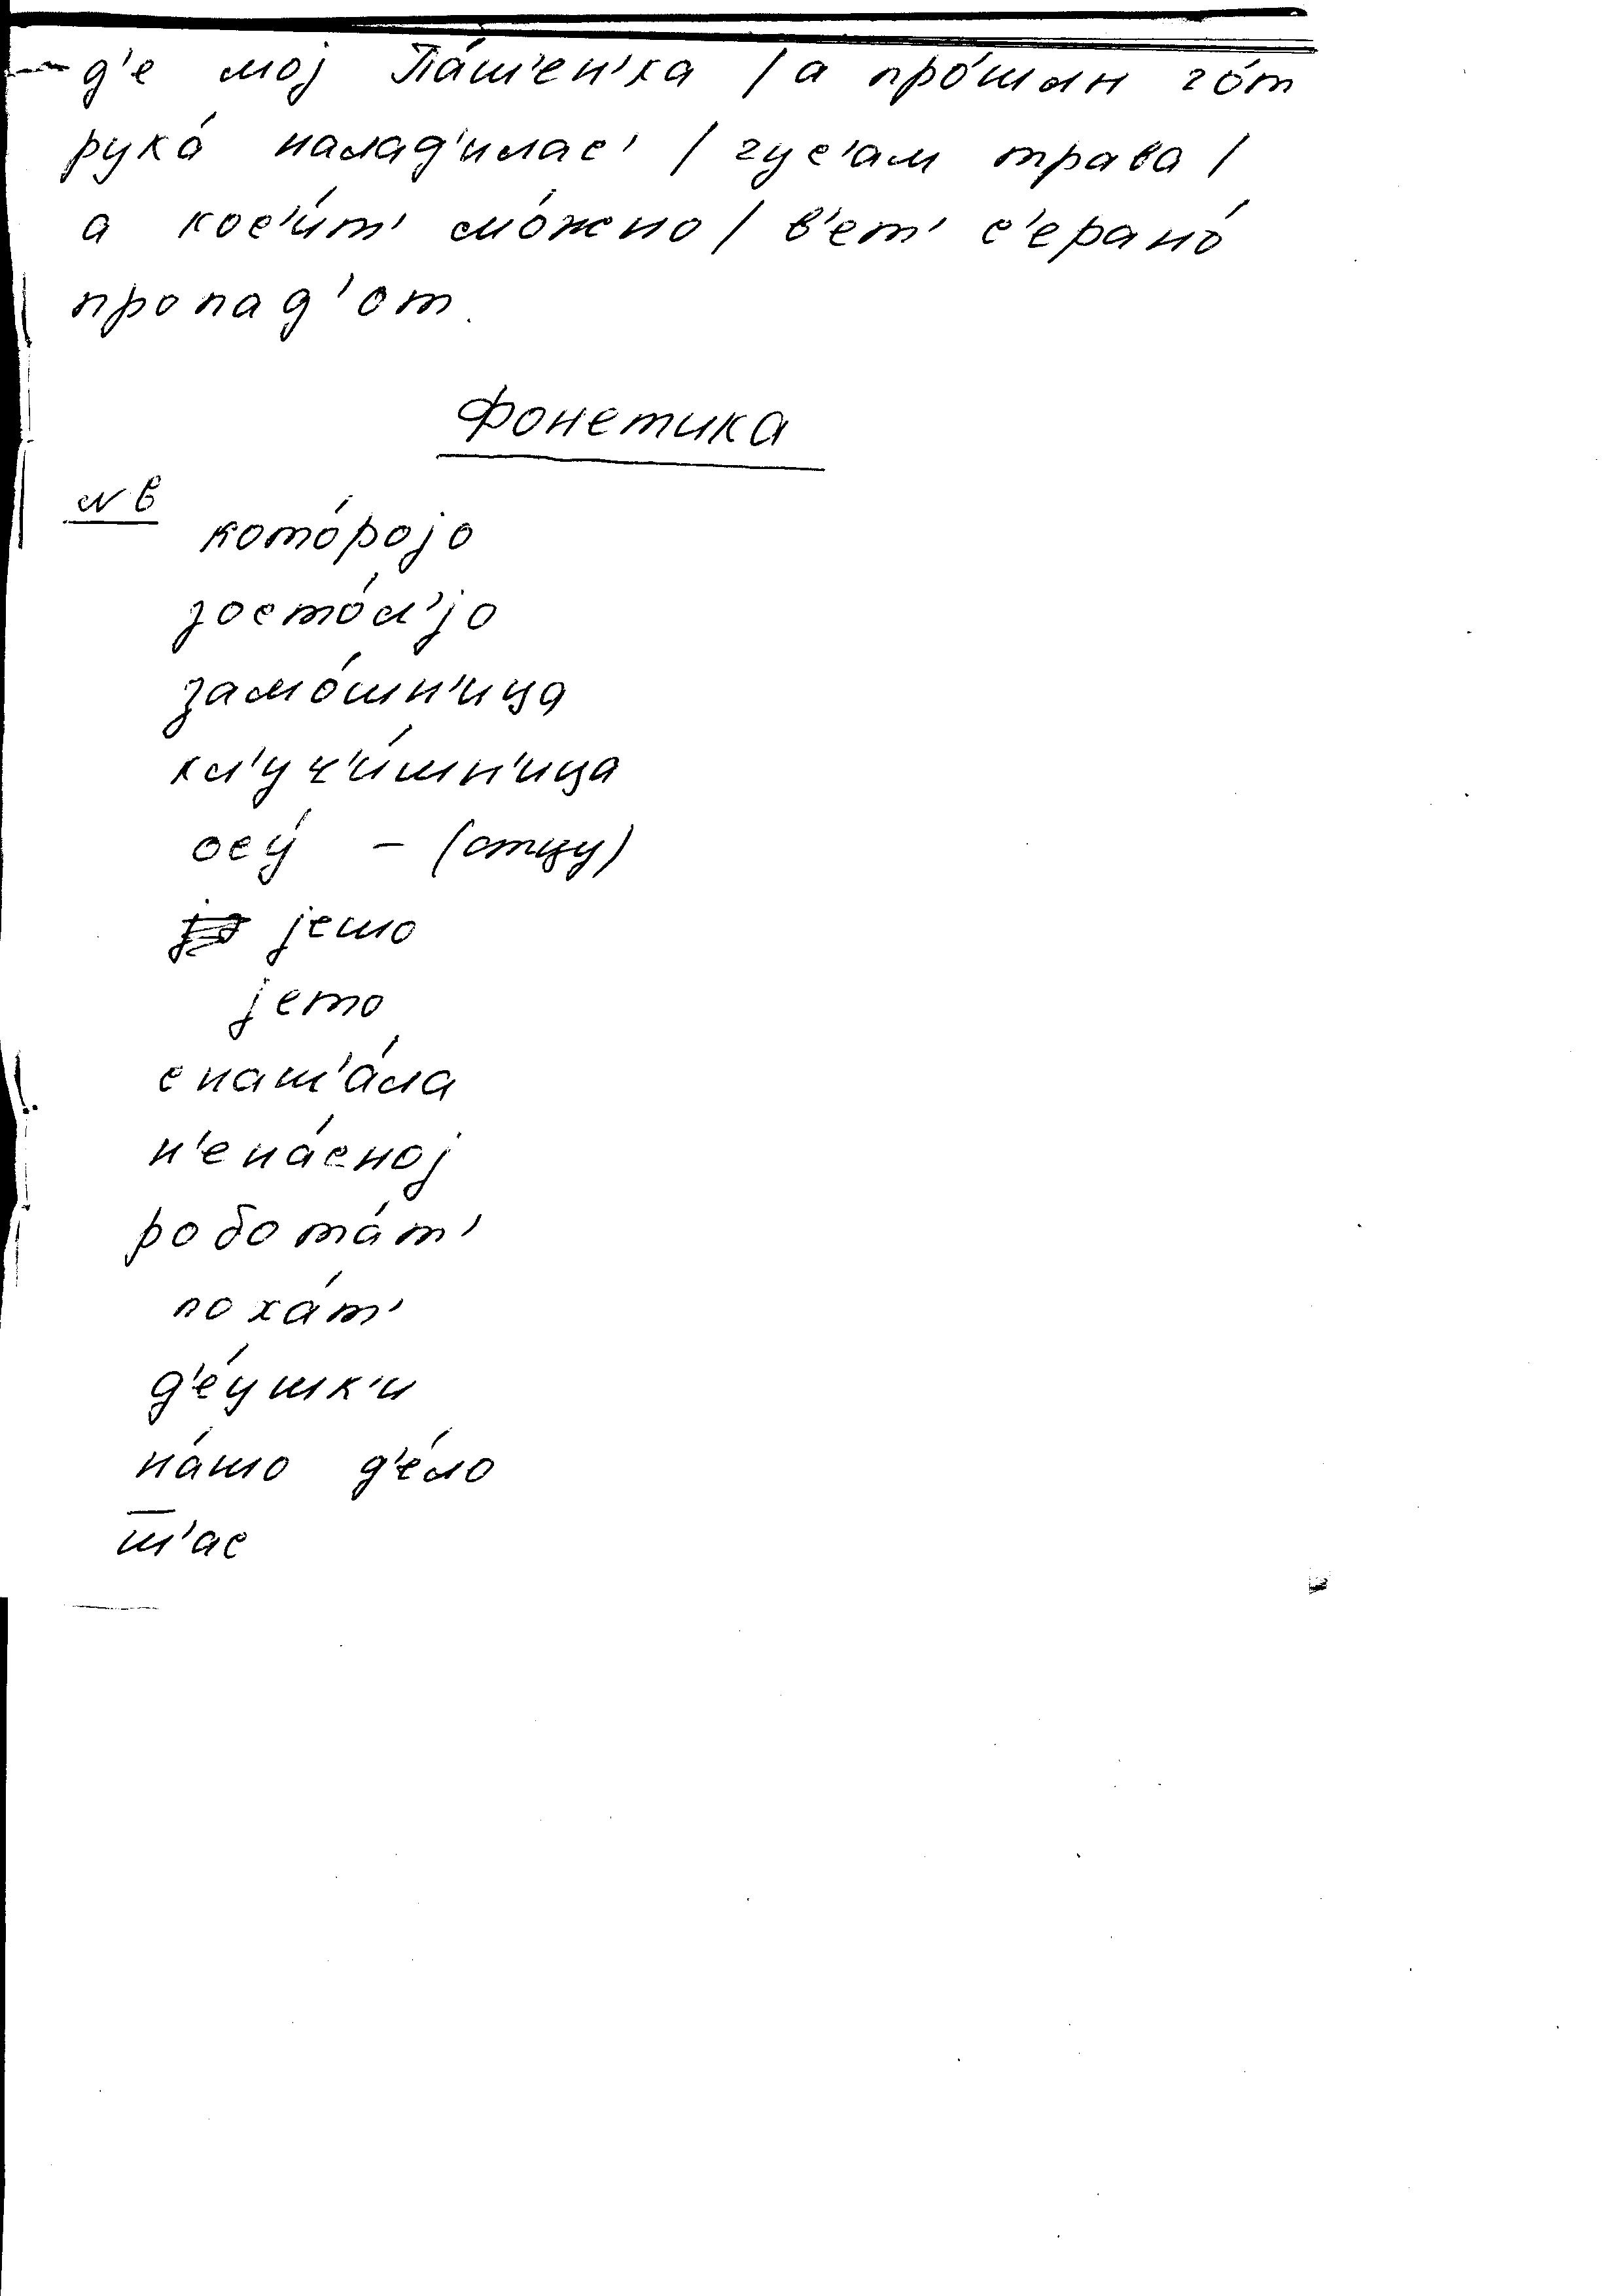 д'е мој Па́ш'ен'ка / а про́шлн го́т
рука́ налад'илас' / гус'ам трава /
а кос'и́т' мо́жно / в'ет' с'ерано́
пропад'от.
Фонетика
№ 6
кото́ројо
застол'јо
замо́шн'ица
кл'уч'и́шн'ица
осу́ – (отцу)
јешо
јето
с наш'а́ла
н'ена́сној
робота́т'
паха́т'
д'е́ушк'и
на́шо д'е́ло
ш̅'ас